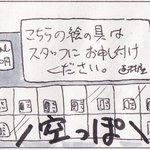 こちらの絵の具は
スタッフにお申し付け
ください。
空っぽ